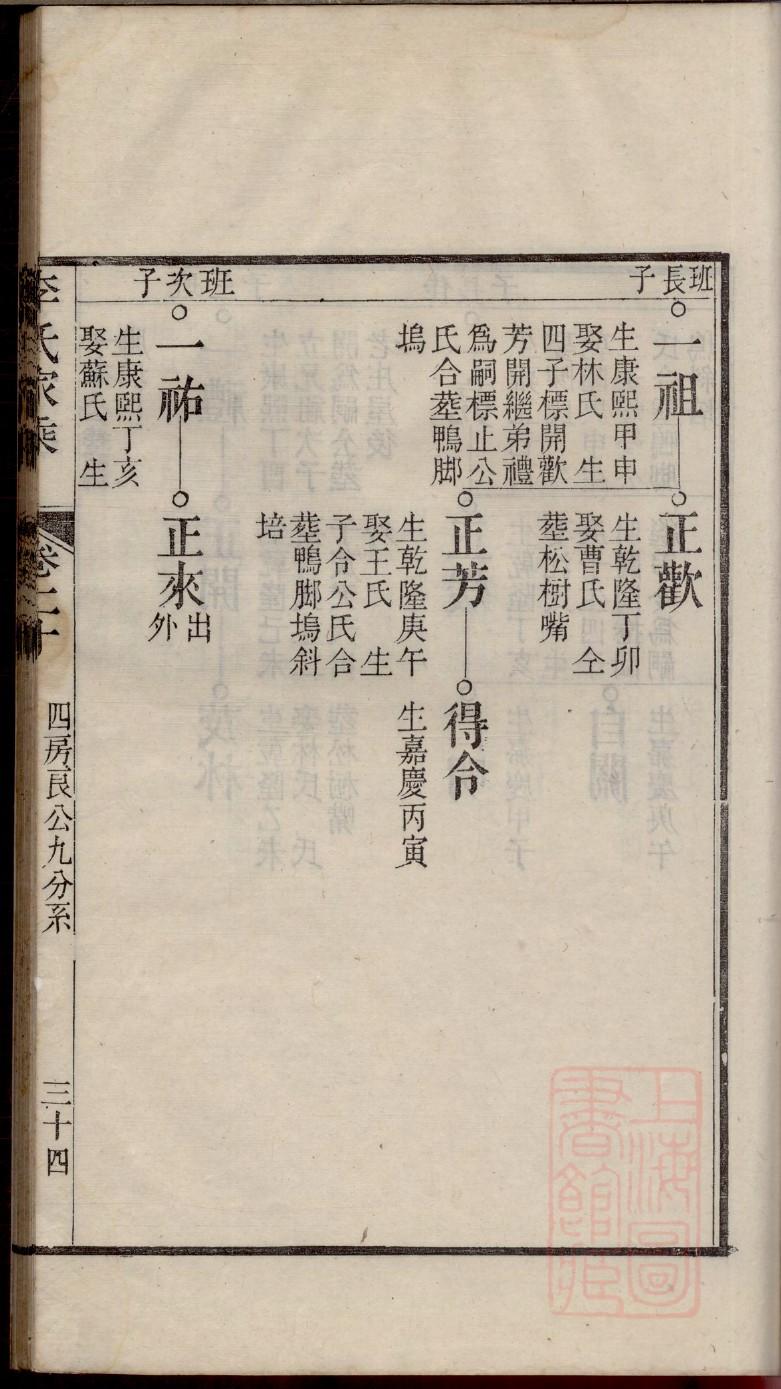 班長子
一祖
生康熙甲申
娶林氏 生
四子標開歡
芳開繼弟禮
爲嗣標止公
氏合塟鴨脚
塢
正歡
生乾隆丁卯
娶曹氏 仝
塟松樹嘴
正芳
生乾隆庚午
娶王氏 生
子令公氏合
塟鴨脚塢斜
培
得令
生嘉慶丙寅
班次子
一祐
生康熙丁亥
娶蘇氏 生
正來
出
外
李氏家乘
卷二十
四房良公九分系
三十四
上海圖
書館藏